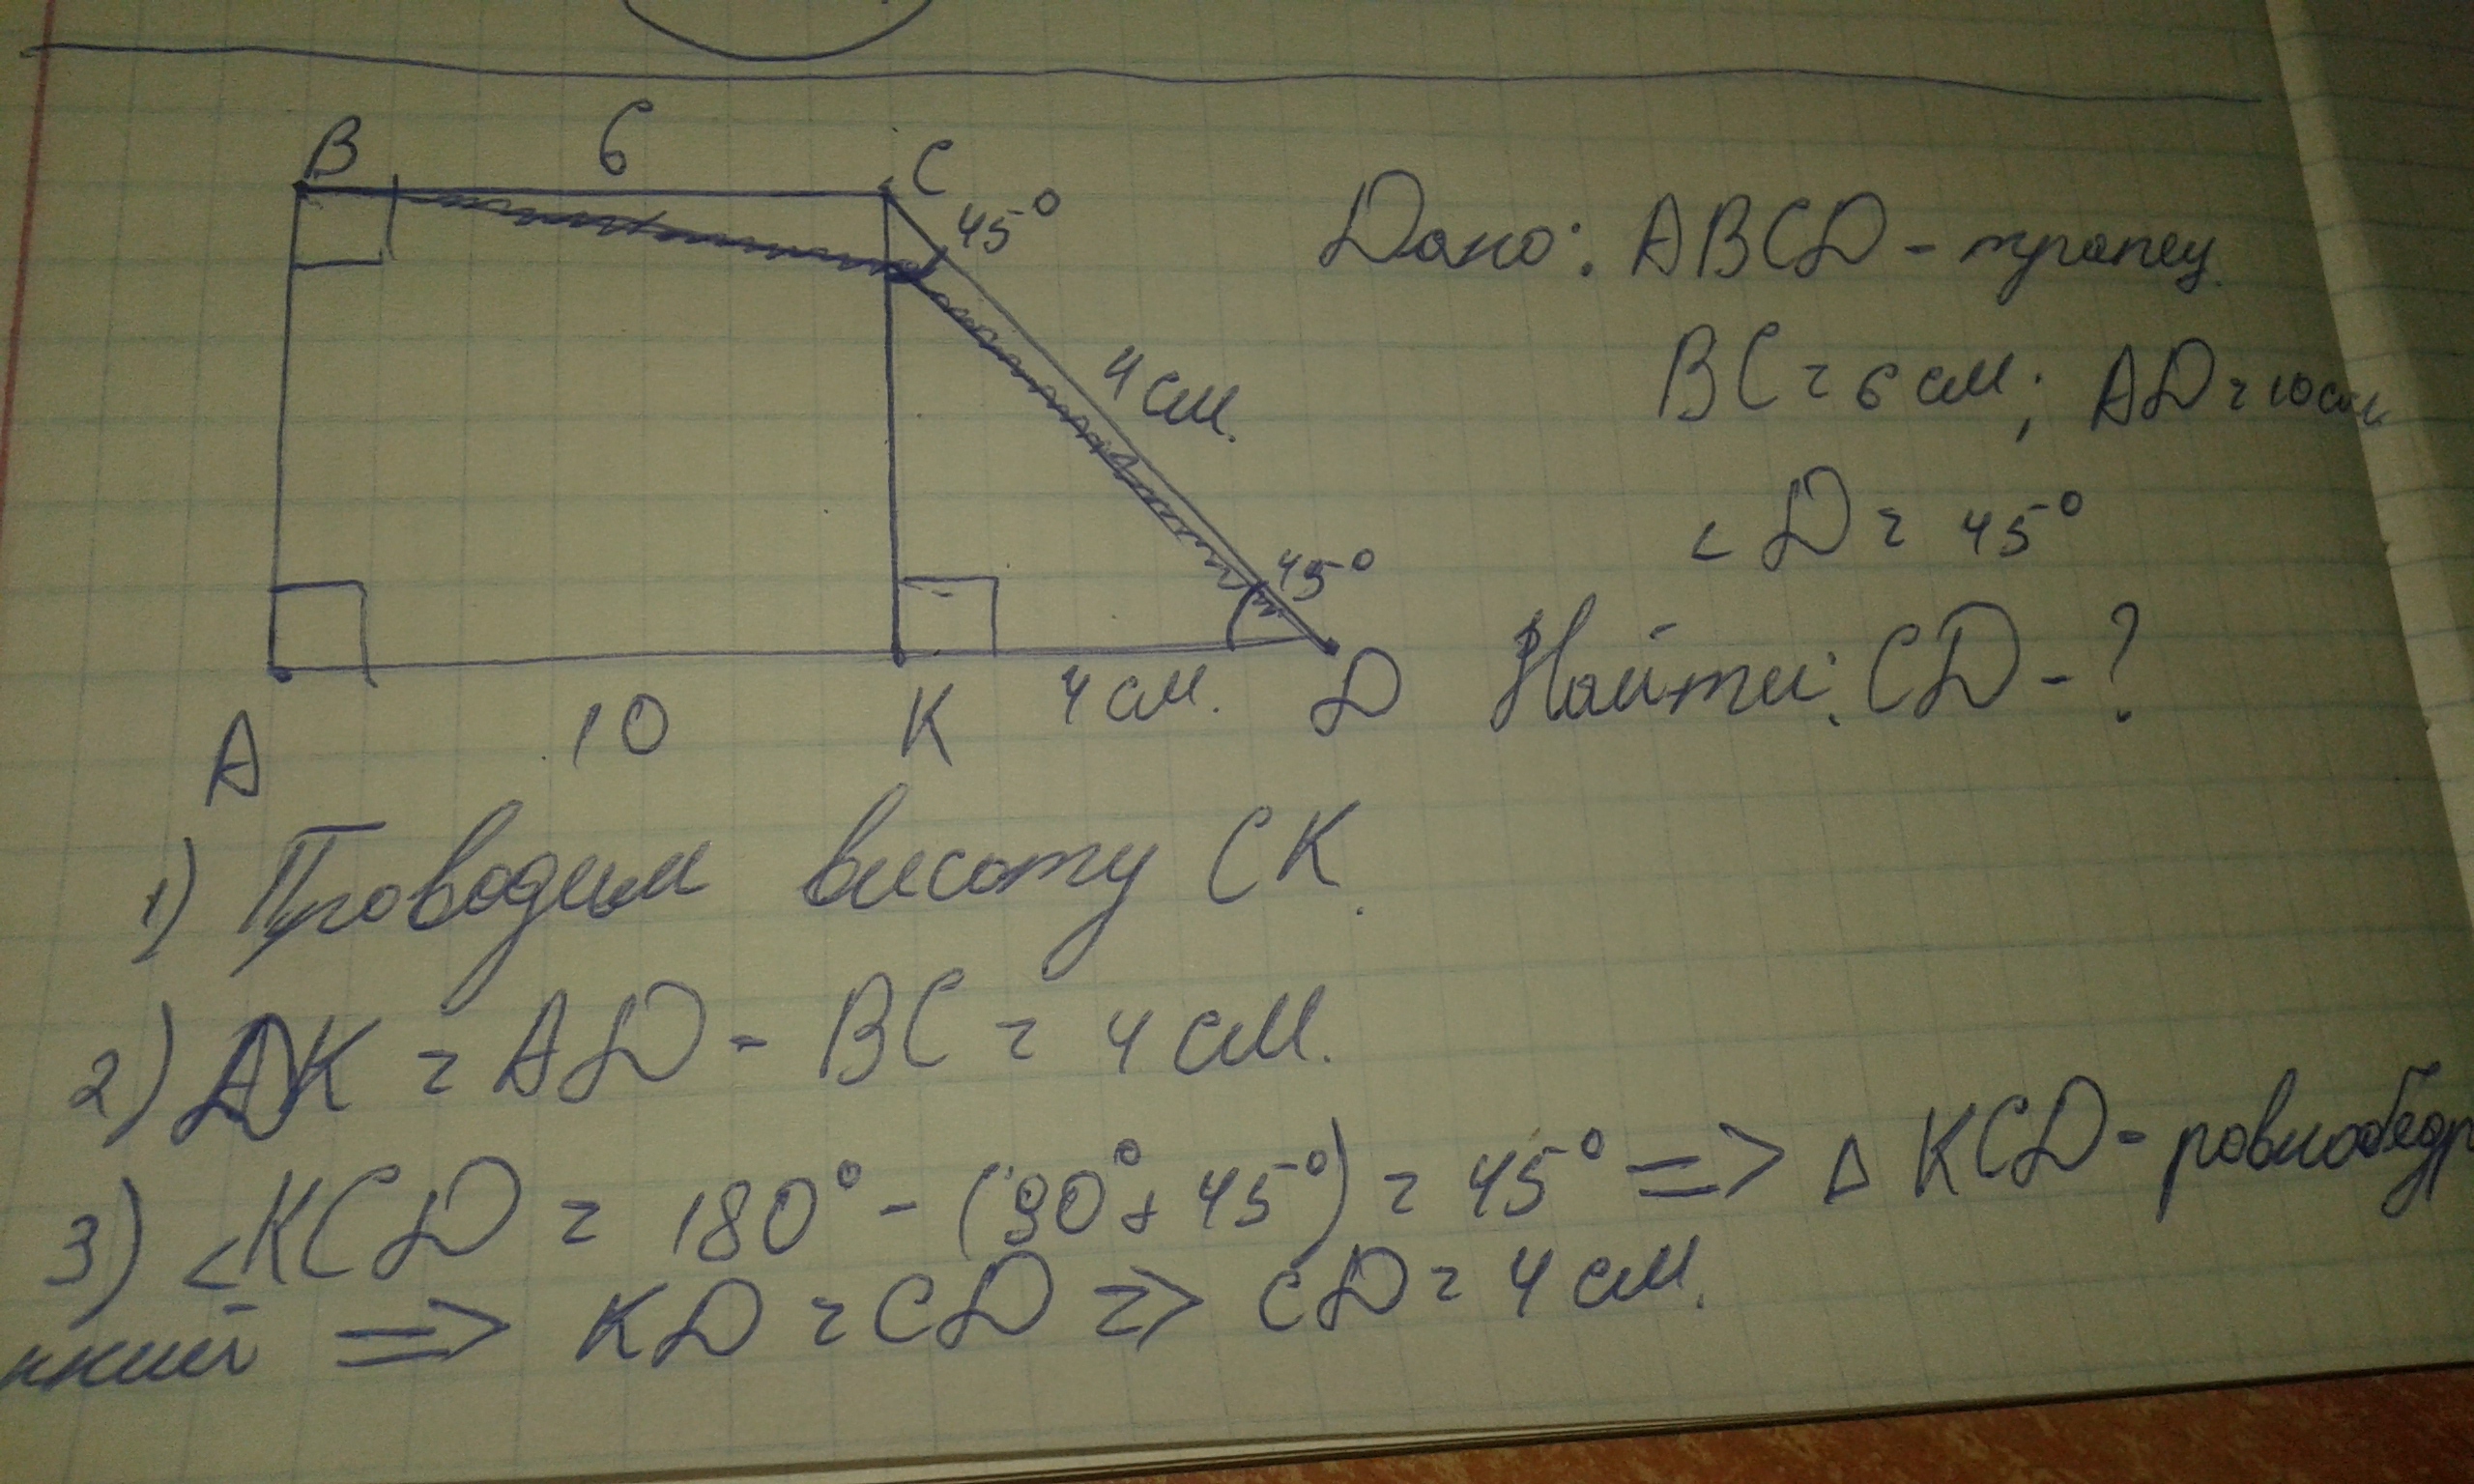 B 6 C
45°
Дано: ABCD - трапец.
4 см.
BC = 6 см; AD = 10 см
45°
< D = 45°
A 10 K 4 см. D
Найти: CD - ?
1) Проводим висоту CK.
2) DK = AD - BC = 4 см.
3) <KCD = 180° - (90° + 45°) = 45° => Δ KCD - ровнобедр
нний => KD = CD => CD = 4 см.